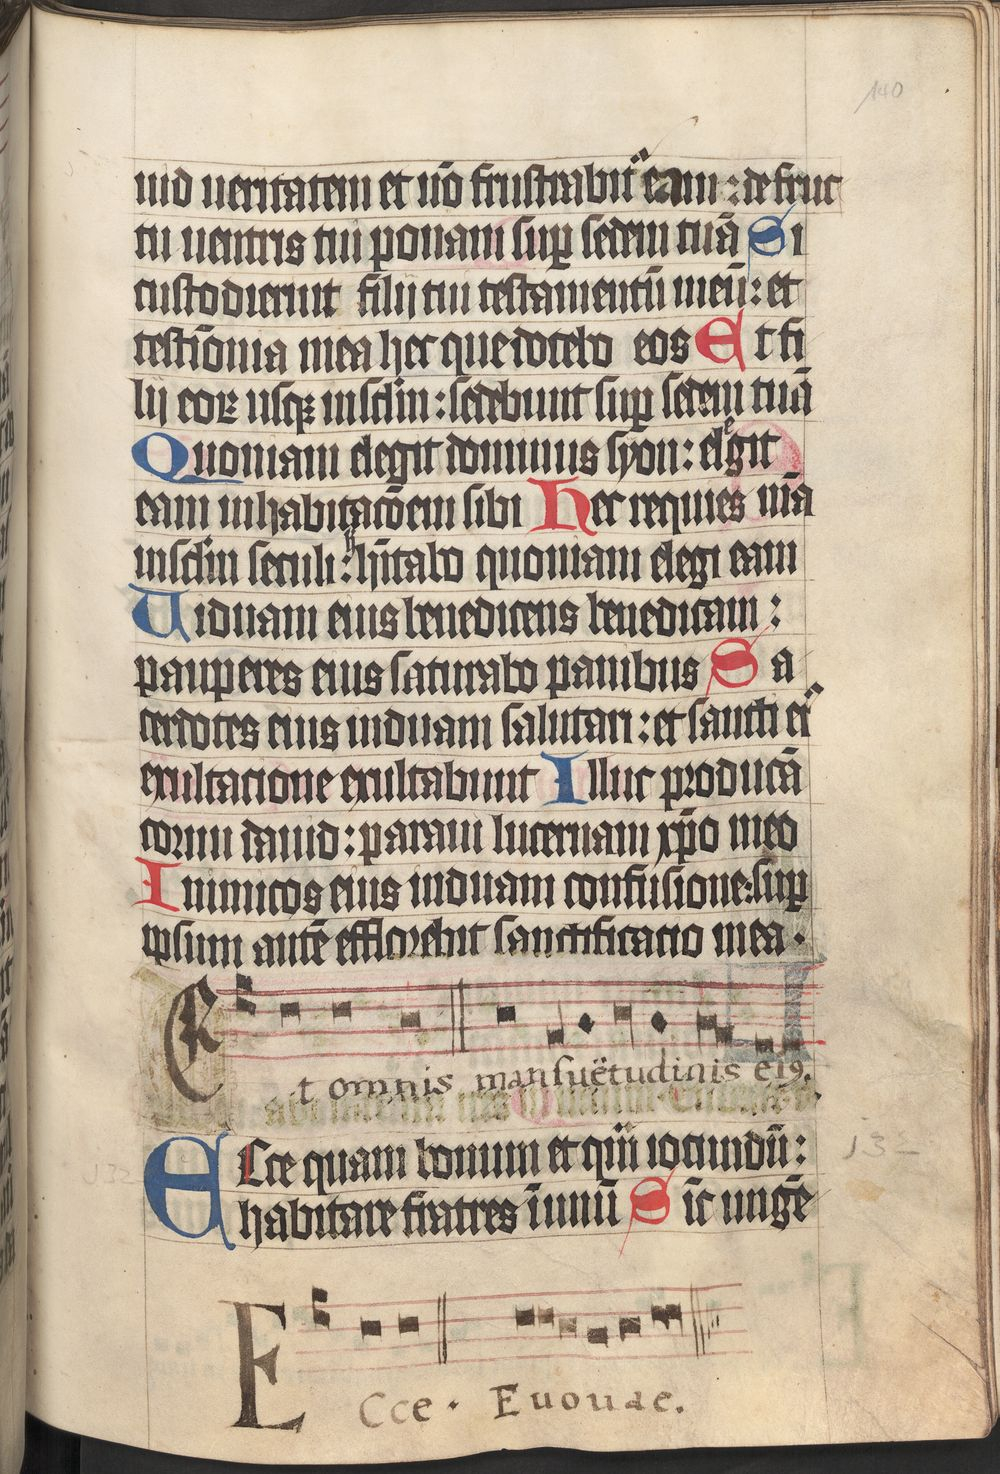 140
uid ueritatem et nō frustrabit᷑ eam : de fruc
tu uentris tui ponam suꝑ sedem tuā Si
custodierint filij tui testamentū meū : et
testiōnia mea hec que docebo eos Et fi
lij eoꝝ usqꝫ insclm : sedebunt suꝑ sedem tuā
Quoniam elegit dominus syon : elegit
eam inhabitacōem sibi Hec requies mā
insclm seculi : hītabo quoniam elegi eam
Uiduam eius benedicens benedicam :
pauperes eius saturabo panibus Sa
cerdotes eius induam salutari : et sancti ei᷑
exultacione exultabunt Illuc producā
cornu dauid : paraui lucernam xp̄o meo
Inimicos eius induam confusione : suꝑ
ipsum autē efflorebit sanctificacio mea .
Et omnis mansuëtudinis ei9.
Ecce quam bonum et qm̄ iocundū :
habitare fratres īunū Sic ungē
13-
132
ECce . Euouae.